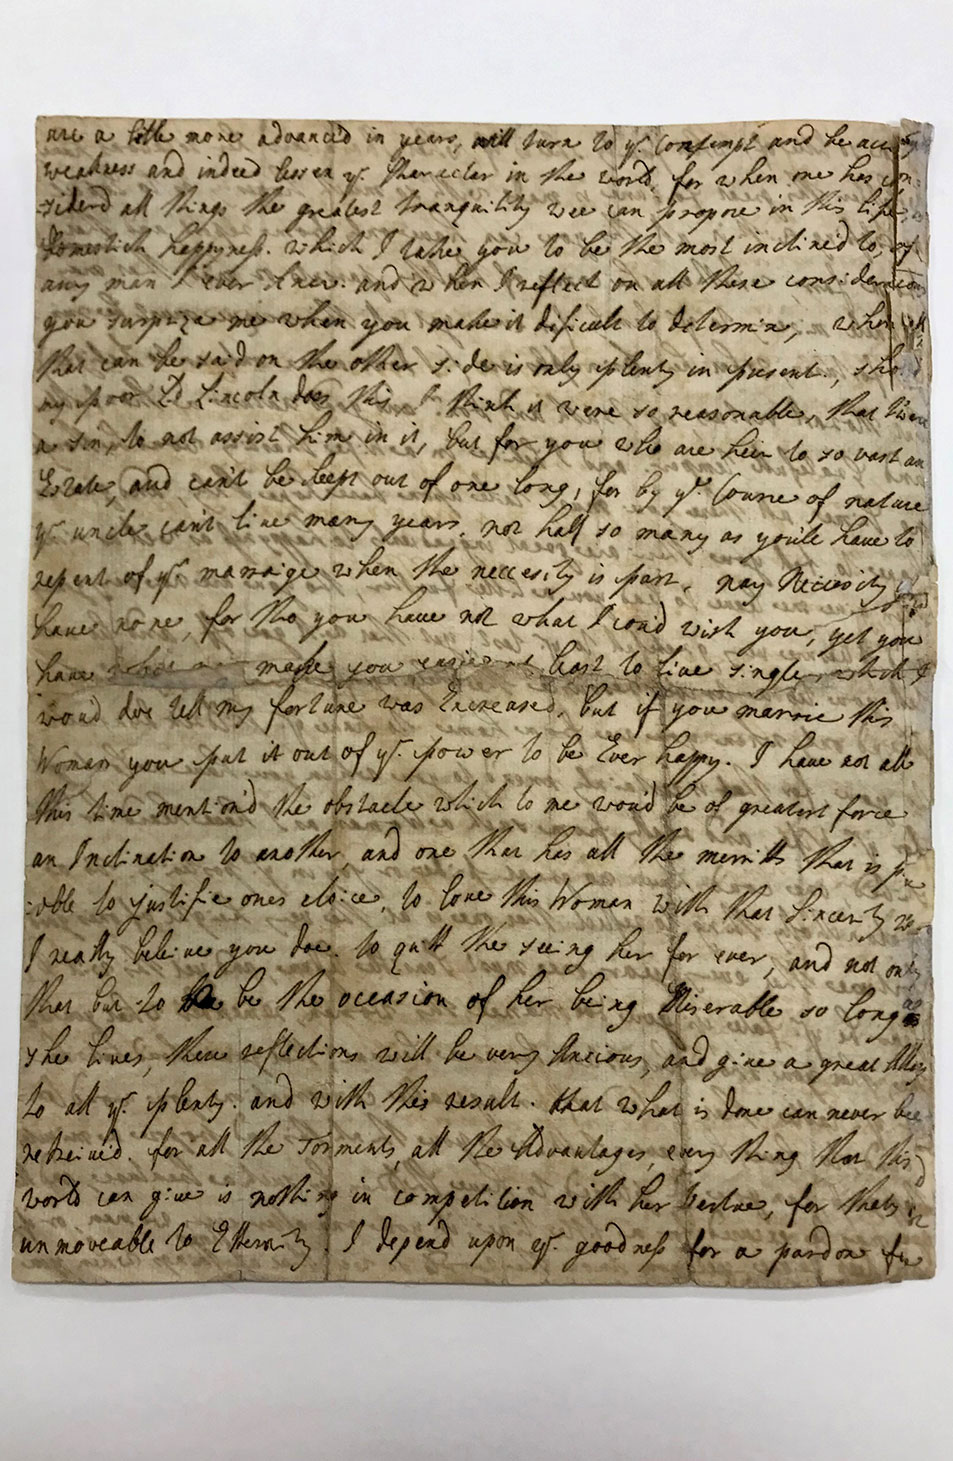 are a little more advanced in years, will turn to yr. Contempt and be
weakness and indeed lessen yr. Character in the world, for when one has con
-siderd all things the greatest tranquility wee can propose in this life
domestick happyness. which I take you to be the most inclined to, of
any man I ever knew. and when I reflect on all these considerations
you surprize me when you make it dificult to determin, when all
that can be said on the other side is only plenty in present, shoud
my poor Ld Lincoln does this I think it were so reasonable, that twere
a sin, to not assist him in it, but for you who are heir to so vast an
Estate, and can't be kept out of one long, for by ye. Course of nature
yr. uncle can't live many years. not half so many as youle have to
repent of yr. marraige when the neccesity is past. nay Necessity you
have none, for tho you have not what I coud wish you, yet you
have make you easie at least to live single, which I
woud doe tell my fortune was Encreased. but if you marrie this
Woman you put it out of yr. power to be Ever happy. I have not all
this time mention'd the obstacle which to me woud be of greatest force
an Inclination to another, and one that has all the merritts that is po
:ssble to justifie ones choice, to love this Woman with that sincerity as
I really believe you doe. to quitt the seeing her for ever, and not only
that but to be the occasion of her being Miserable so long as
she lives, thes reflections will be very Ancious, and give a great Alloy
to all yr. plenty. and with this result. that what is done can never bee
retreiv'd. for all the Torments, all the Advantages, every thing that this
world can give is nothing in competition with her Vertue, for thats
unmoveable to Etternity. I depend upon yr. goodness for a pardon for